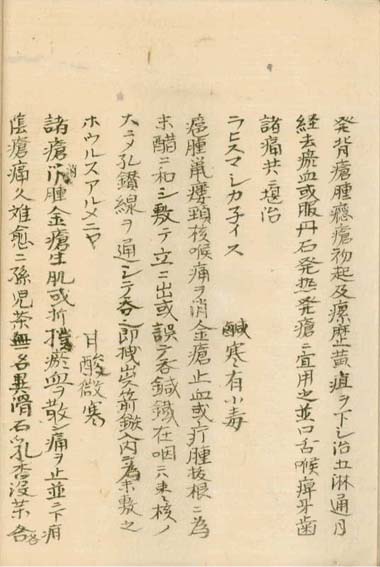 発背瘡腫癮瘡初起及瘰癧黄疸ヲ下シ治五淋通月
経去瘀血或服丹石発热発瘡ニ宜用之並口舌喉痺牙歯
諸痛共ニ堪治
ラヒスマシカ子イス 鹹寒有小毒
癌腫鼠瘻頚核喉痛ヲ消金瘡止血或疔腫抜根ニ為
末醋ニ和シ敷テ立ニ出或誤テ呑鍼鐵在咽ニハ末核ノ
大ニメ孔鑚線ヲ通シテ呑之即拽出矢箭鏃入肉ニ為末敷之
ホウルスアルメニヤ 甘酸微寒
諸瘡消腫金瘡生肌或折瘀血ヲ散シ痛ヲ止並ニ下疳
陰瘡痛久难愈ニ孫児茶無名異滑石乳香没薬各